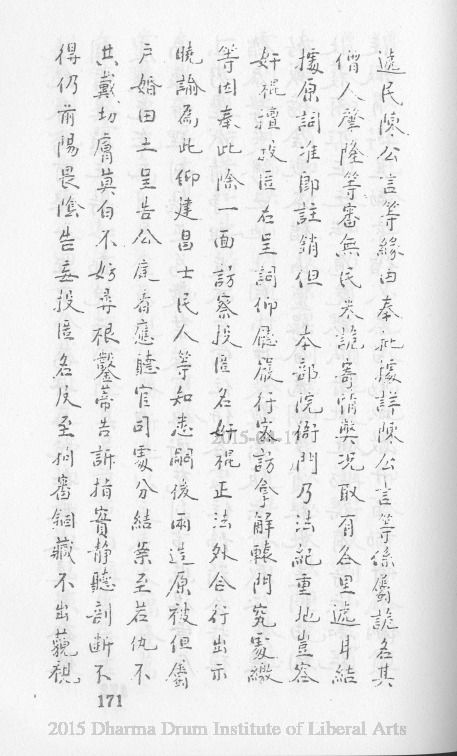 遞民陳公言等緣由奉批據詳陳公言等係屬詭名其
僧人肇隆等審無民米詭寄情獘況取有各里遞甘結
據原詞准即註銷但 本部院衙門乃法紀重地豈容
奸棍擅投匿名呈詞仰廳嚴行密訪拿解轅門究處繳
等因奉此除一面訪察投匿名奸棍正法外合行出示
曉諭為此仰建昌士民人等知悉嗣後兩造原被但屬
戶婚田土呈告公庭者應聽官司處分結案至若仇不
共戴切膚莫白不妨尋根鑿蒂告訴指實靜聽剖断不
得仍前陽畏陰告妄投匿名及至拘審錮藏不出藐視
171
2015-08-17
2015 Dharma Drum Institute of Liberal Arts